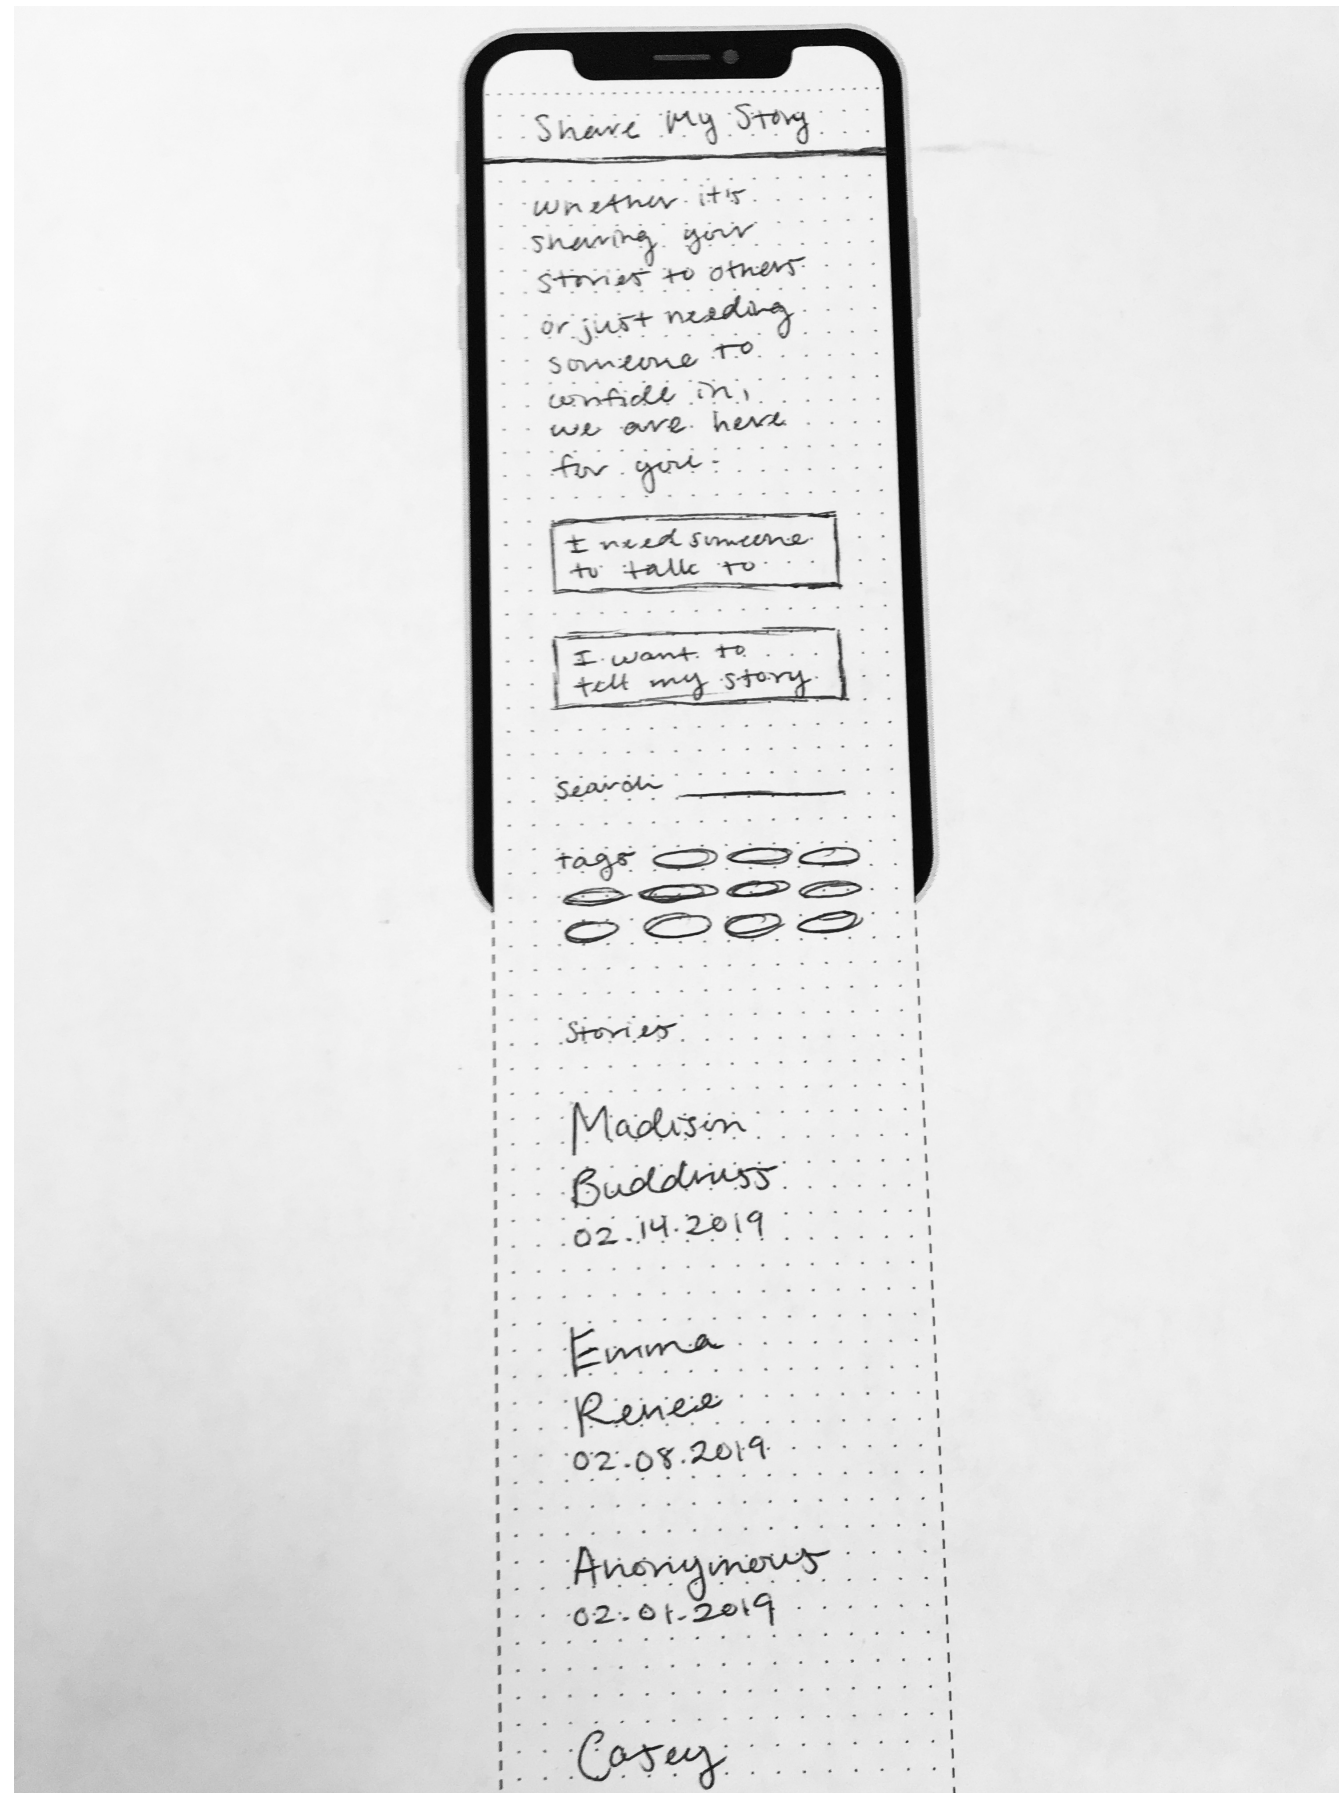 Share My Story
Whether it's
sharing your
stories to others
or just needing
someone to
confide in,
we are here
for you.
I need someone
to talk to
I want to
tell my story
Search
tags
Stories
Madison
Buddruss
02.14.2019
Emma
Renee
02.08.2019
Anonymous
02.01.2019
Casey